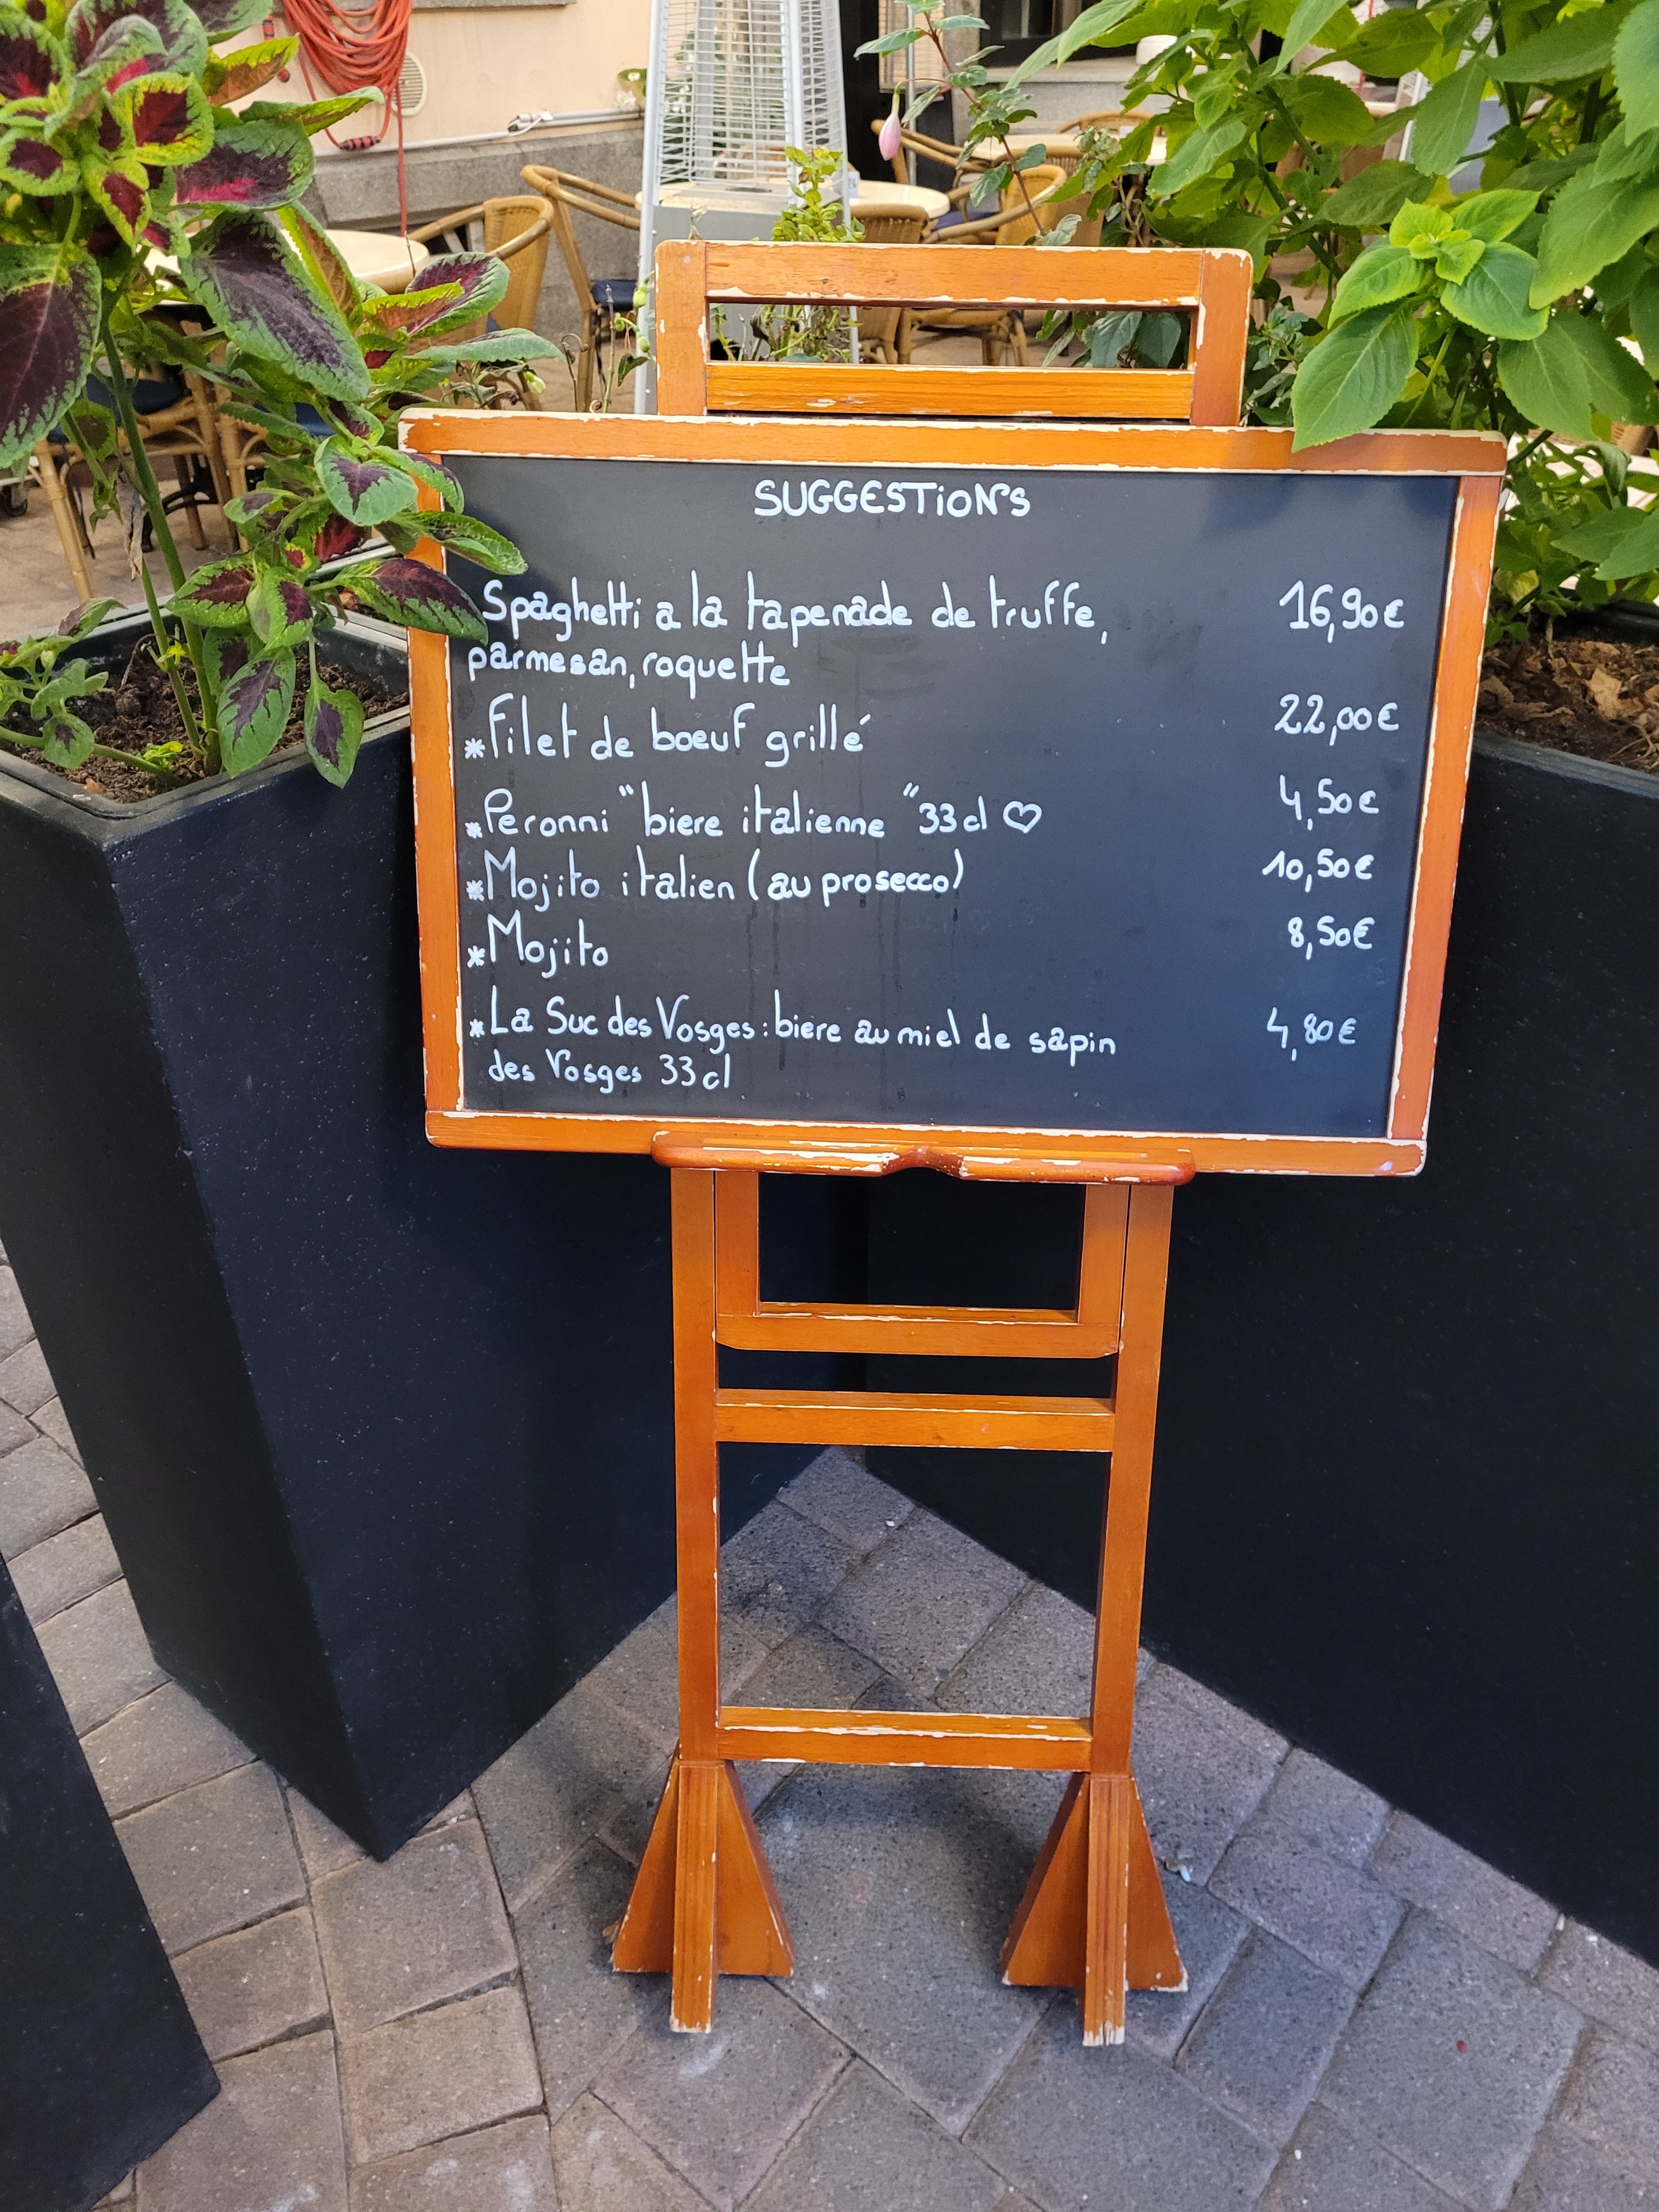 SUGGESTIONS
Spaghetti a la tapenade de truffe, 16,90€
parmesan, roquette
*Filet de boeuf grillé 22,00€
*Peronni "biere italienne" 33cl ♡ 4,50€
*Mojito italien (au prosecco) 10,50€
*Mojito 8,50€
*La Suc des Vosges: biere au miel de sapin 4,80€
des Vosges 33cl